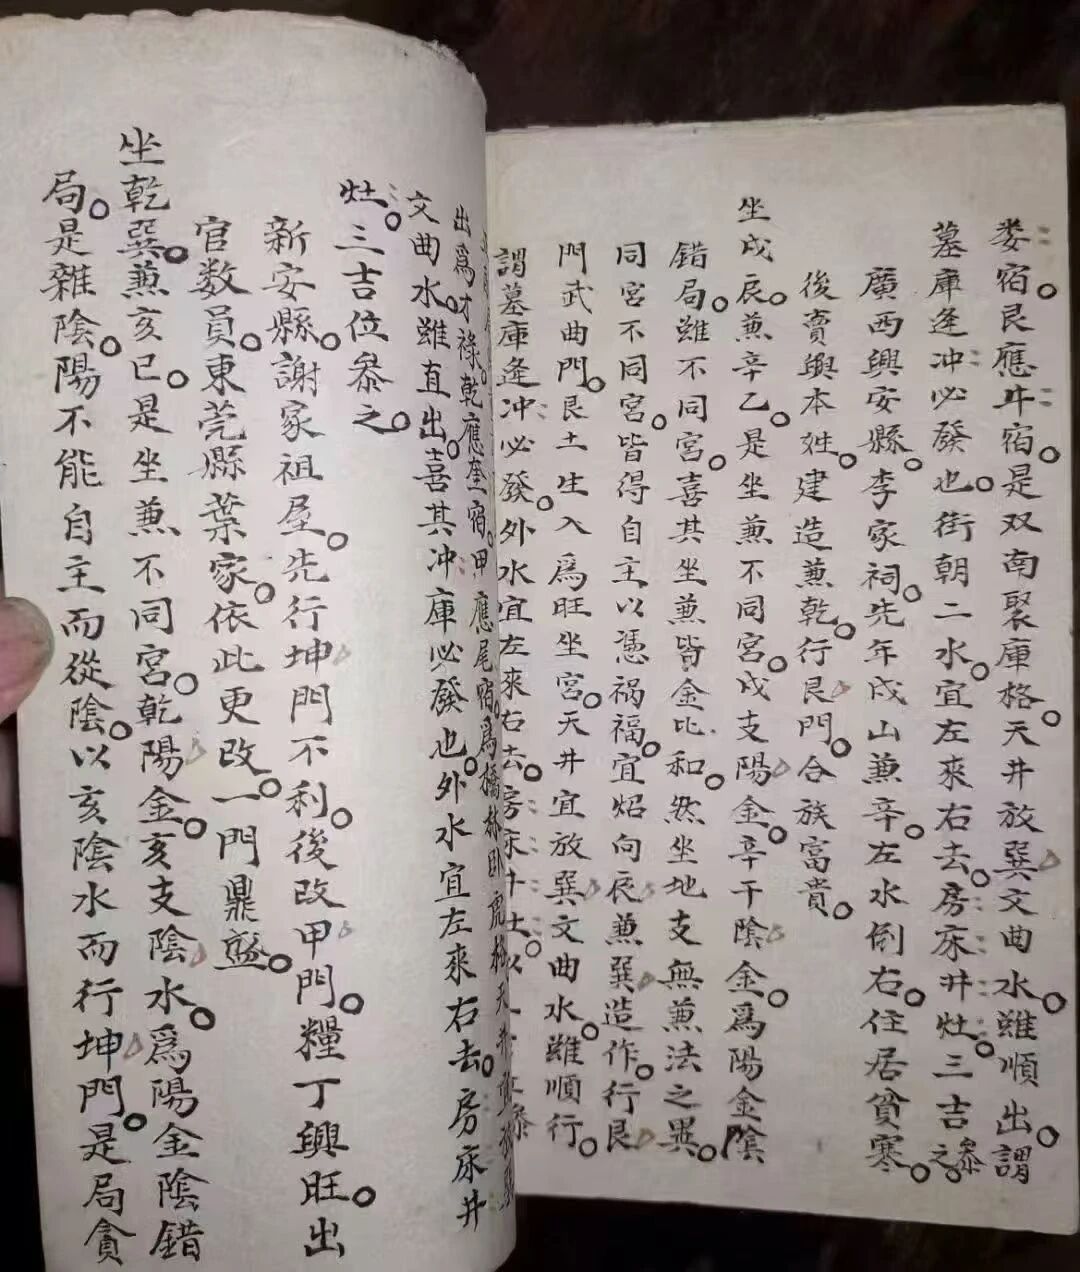 娄宿艮應斗宿是双南聚庫格天井放巽文曲水雖順出謂
墓庫逢冲必發也街朝二水宜左來右去房床井灶三吉叅之
廣西興安縣李家祠先年戌山兼辛左水倒右住居貧寒
後賣與本姓建造兼乾行艮門合族富貴
坐戌辰兼辛乙是坐兼不同宮戌支陽金辛干陰金為陽金陰
錯局雖不同宮喜其坐兼皆金比和然坐地支無兼法之異
同宮不同宮皆得自主以憑禍福宜炤向辰兼巽造作行艮
門武曲門艮土生入為旺坐宮天井宜放巽文曲水雖順行
謂墓庫逢冲必發外水宜左來右去房床井灶
出為才祿乾應奎宿甲應尾宿為橋林卧虎格天井
文曲水雖直出喜其冲庫必發也外水宜左來右去房床井
灶三吉位叅之
新安縣謝家祖屋先行坤門不利後改甲門糧丁興旺出
官数員東莞縣葉家依此更改一門鼎盛
坐乾巽兼亥巳是坐兼不同宮乾陽金亥支陰水為陽金陰錯
局是雜陰陽不能自主而從陰以亥陰水而行坤門是局貪